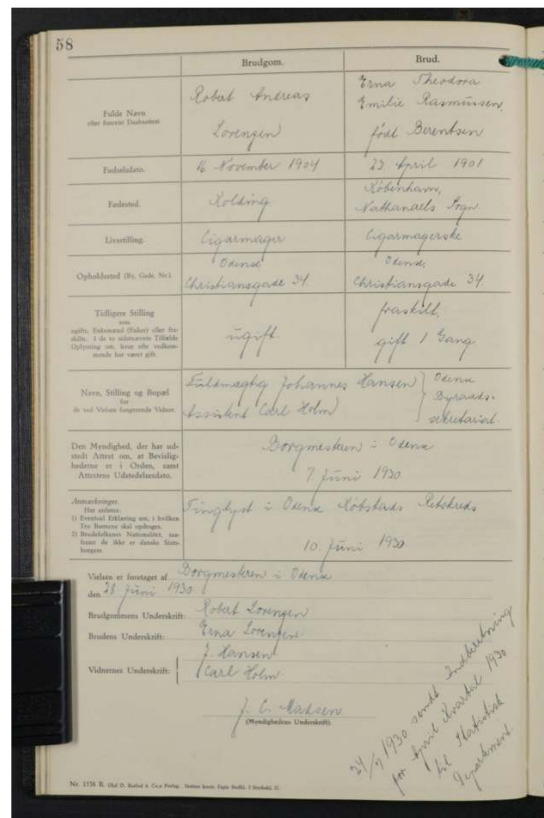 58
Brudgom.
Brud.
Fulde Navn
eller forment Daabsattest
Robert Andreas
Lorenzen
Erna Theodora
Emilie Rasmussen,
født Berentsen
Fødselsdato.
16 November 1904
22. April 1901
Fødested.
Kolding
København,
Nathanaels Sogn
Livsstilling.
Cigarmager
Cigarmagerske
Opholdssted (By, Gade, Nr.).
Odense
Christiansgade 34.
Odense,
Christiansgade 34.
Tidligere Stilling
som
ugifte, Enkemand (Enke) eller fra-
skilte. I de to sidstnævnte Tilfælde
Oplysning om, hvor ofte vedkom-
mende har været gift.
ugift.
fraskilt,
gift 1 Gang
Navn, Stilling og Bopæl
for
de ved Vielsen fungerende Vidner.
Fuldmægtig Johannes Hansen
Assistent Carl Holm
Odense
Byraads-
sekretariat.
Den Myndighed, der har ud-
stedt Attest om, at Betingel-
hederne er i Orden, samt
Attestens Udstedelsesdato.
Borgmesteren i Odense
7. Juni 1930
Anmærkninger.
Her anføres:
1) Eventuel Erklæring om, i hvilken
Tro Børnene skal opdrages.
2) Brudefolkenes Nationalitet, saa-
fremt de ikke er danske Stats-
borgere.
Tinglyst i Odense Købstads Retskreds
10. Juni 1930
Vielsen er foretaget af Borgmesteren i Odense
den 28. Juni 1930
Brudgommens Underskrift: Robert Lorenzen
Brudens Underskrift: Erna Lorenzen
J. Hansen
Vidnernes Underskrift: Carl Holm
J. C. Madsen
(Myndighedens Underskrift).
24/7 1930 sendt Indberetning
for April Kvartal 1930
til Statistisk
Departement.
Nr. 1158 B.